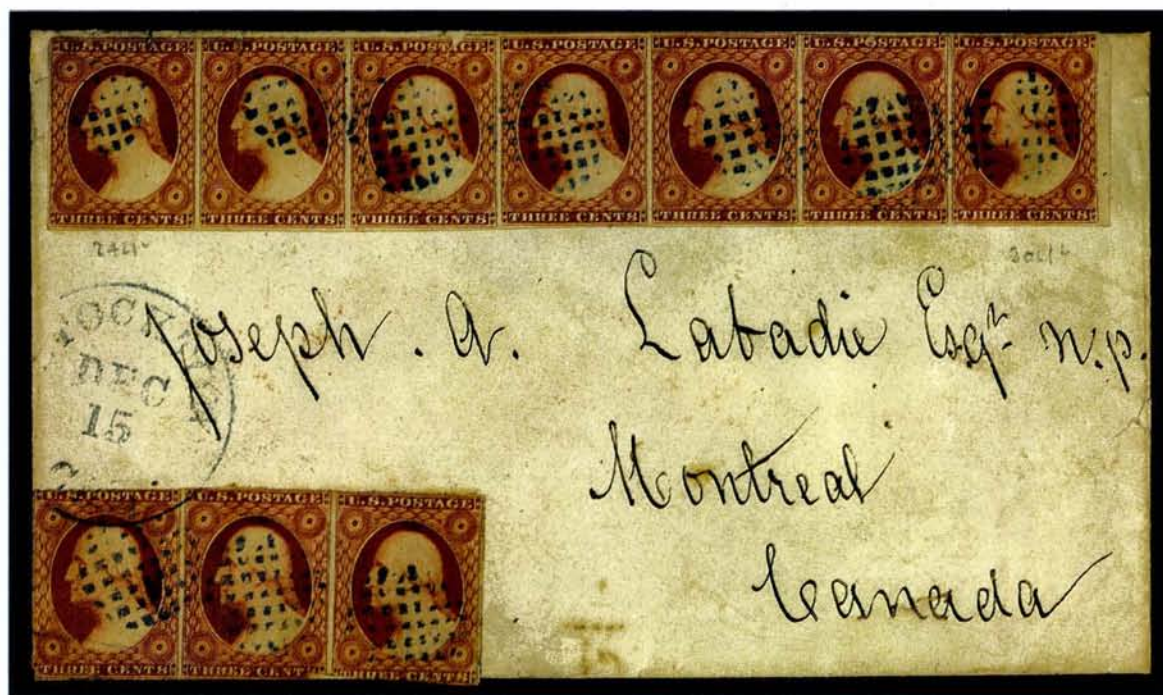 U.S. POSTAGE U.S. POSTAGE U.S. POSTAGE U.S. POSTAGE U.S. POSTAGE U.S. POSTAGE U.S. POSTAGE
THREE CENTS THREE CENTS THREE CENTS THREE CENTS THREE CENTS THREE CENTS THREE CENTS
Joseph . A. Labadie Esqr N.P.
DEC
15
Montreal
Canada
U.S. POSTAGE U.S. POSTAGE U.S. POSTAGE
THREE CENTS THREE CENTS THREE CENTS